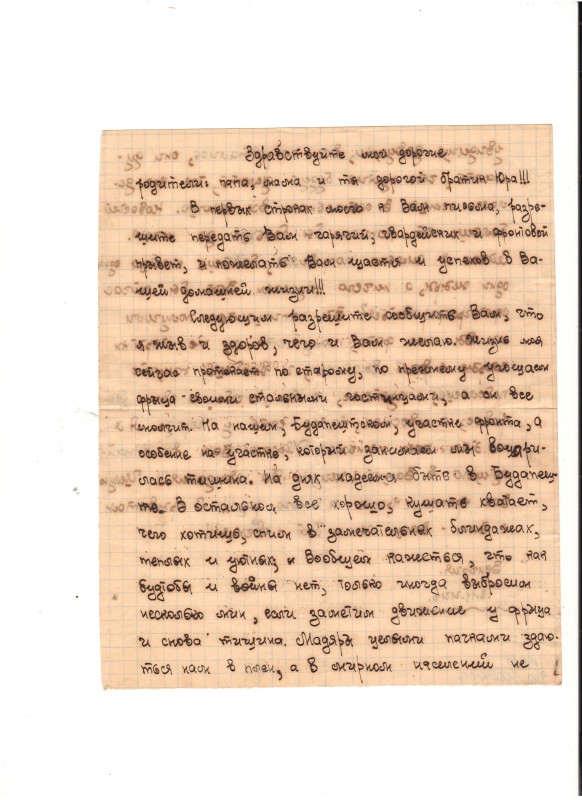 Здравствуйте мои дорогие
родители: папа, мама и ты дорогой братик Юра!!!
В первых строках моего к Вам письма, разре-
щите передать Вам гарячий, гвардейский и фронтовой
привет, и пожелать Вам щастя и успехов в Ва-
щей домашней жизни!!!
Следующим разрешите сообщить Вам, что
я жыв и здоров, чего и Вам желаю. Жизнь моя
сейчас протекает по старому, по прежнему угощаем
фрица своими стальными "гостинцами", а он все
молчит. На нашем, Будапештском, участке фронта, а
особенно на участке, который занимаем мы воцари-
лась тишина. На днях надеемся быть в Будапеш-
те. В остальном все хорошо, кушать хватает,
чего хотишь, спим в замечательных блиндажах,
теплых и уютных, и вообщем кажеться, что как
будтобы и войны нет, только иногда выбросим
несколько мин, если заметим движение у фрица
и снова тищина. Мадяры целыми пачками здаю-
ться нам в плен, а в мирном население не